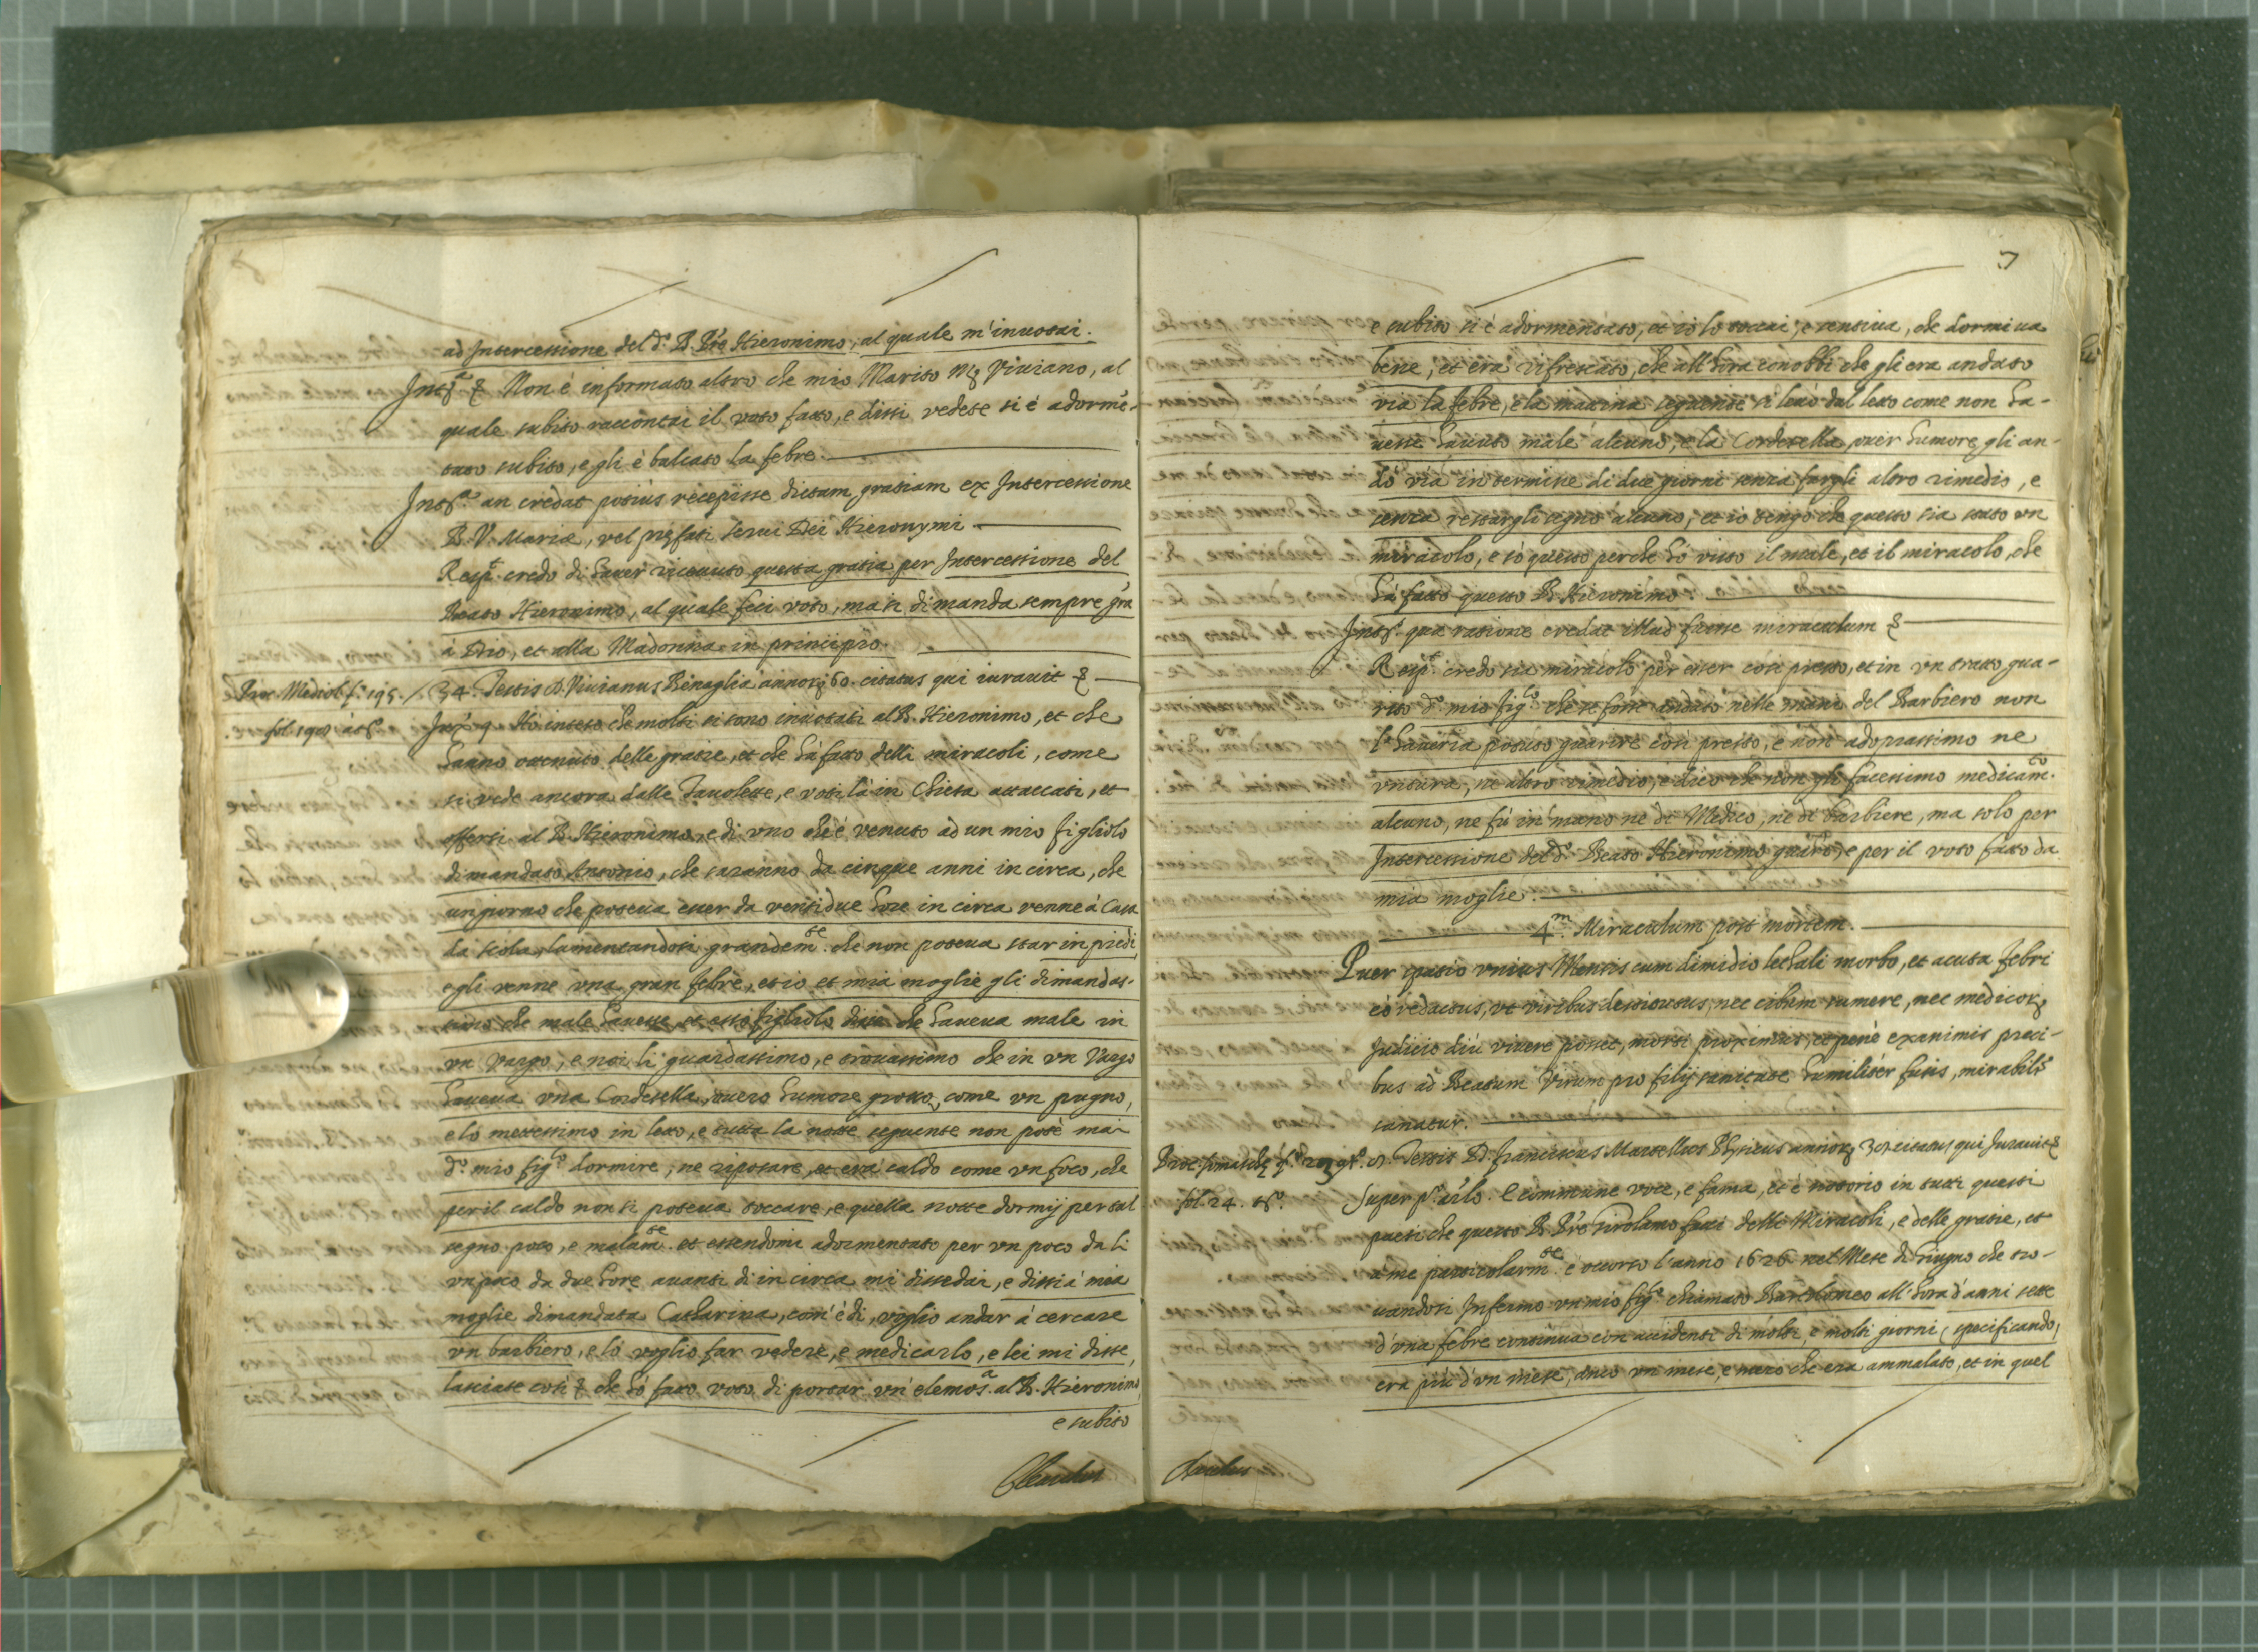 ad Intercessione del d.º B. Pře Hieronimo, al quale m'inuotai.
Non è informato altro che mio Marito Viuiano, al
quale subito raccontai il voto fatto, e dissi vedete si è adormē-
tato subito, e gli è balcato la febre.
an credat potiùs recepisse dictam gratiam ex Intercessione
B. V. Mariæ, vel serui Dei Hieronymi
credo di hauer riceuuto questa gratia per Intercessione del
Beato Hieronimo, al quale feci voto, ma si dimanda sempre
à Dio, et alla Madonna in principio.
Proc. Mediol. f. 195. 34. Testis D. Viuianus Benaglia 60. citatus qui iurauit
Hò inteso che molti si sono inuotati al B. Hieronimo, et che
hanno ottenuto delle gratie, et che hà fatto delli miracoli, come
si vede ancora dalle Tauolette, e voti là in Chiesa attaccati, et
offerti al B. Hieronimo, e di vno che è venuto ad un mio figliolo
dimandato Antonio, che saranno da cinque anni in circa, che
un giorno che poteua esser da ventidue hore in circa venne à Casa
da scola, lamentandosi grandem.te che non poteua star in piedi
e gli venne vna gran febre, et io, et mia moglie gli dimandas-
simo che male hauesse, et esso figliolo disse che haueua male in
vn Vargo, e noi li guardassimo, e trouassimo che in vn Vargo
haueua vna Cordesella, ouero humore grosso, come vn pugno,
e lo mettessimo in letto, e tutta la notte seguente non potè mai
d.º mio fig.lo dormire, ne riposare, et era caldo come vn foco, che
per il caldo non si poteua toccare, e quella notte dormij per tal
segno poco, e malam.te et essendomi adormentato per vn poco da li
vn poco da due hore auanti dì in circa mi dissedai, e dissi à mia
moglie dimandata Catharina, com'è dì, voglio andar à cercare
vn barbiero, e lo voglio far vedere, e medicarlo, e lei mi disse,
lasciate così che hò fatto voto di portar vn'elemos.a al B. Hieronimo,
e subito
7
e subito si è adormentato, et io lo toccai, e sentiua, che dormiua
bene, et era rifrescato, che all'hora conobbi che gli era andato
via la febre, e la mattina seguente si leuò dal letto come non ha-
uesse hauuto male alcuno, e la Cordesella, ouer humore, gli an-
dò via in termine di due giorni senza fargli altro rimedio, e
senza restargli segno alcuno, et io tengo che questo sia stato vn
miracolo, e sò questo perche hò visto il male, et il miracolo, che
hà fatto questo B. Hieronimo
qua ratione credat illud fuisse miraculum
credo sia miracolo per esser così presto, et in vn tratto gua-
rito d.º mio fig.lo che se fosse andato nelle mani del Barbiero non
l'haueria potuto guarire così presto, e non adoprassimo ne
vntura, ne altro rimedio, e dico che non gli facessimo medicam.to
alcuno, ne fù in mano ne di Medico, ne di barbiere, ma solo per
Intercessione del d.º Beato Hieronimo guarì, e per il voto fatto da
mia moglie.
4.m Miraculum post mortem.
Puer spatio vnius Mensis cum dimidio lethali morbo, et acuta febri
eò redactus, vt viribus destitutus, nec cibum sumere, nec
Iudicio diù viuere posset, morti proximus, et penè exanimis preci-
bus ad Beatum Virum pro filij sanitate humilitèr fusis,
sanatur.
Testis D. Franciscus Martellus Physicus citatus qui Iurauit
fol. 24. Super È commune voce, e fama, et è notorio in tutti questi
paesi che questo B. Pře Girolamo facci delli Miracoli, e delle gratie, et
à me particolarm.te è occorso l'anno 1626 nel Mese di Giugno che tro-
uandosi Infermo vn mio fig.lo chiamato Bartolomeo all'hora d'anni sette
d'vna febre continua con accidenti di molti, e molti giorni, specificando,
era più d'vn mese, anco vn mese, e mezo che era ammalato, et in quel